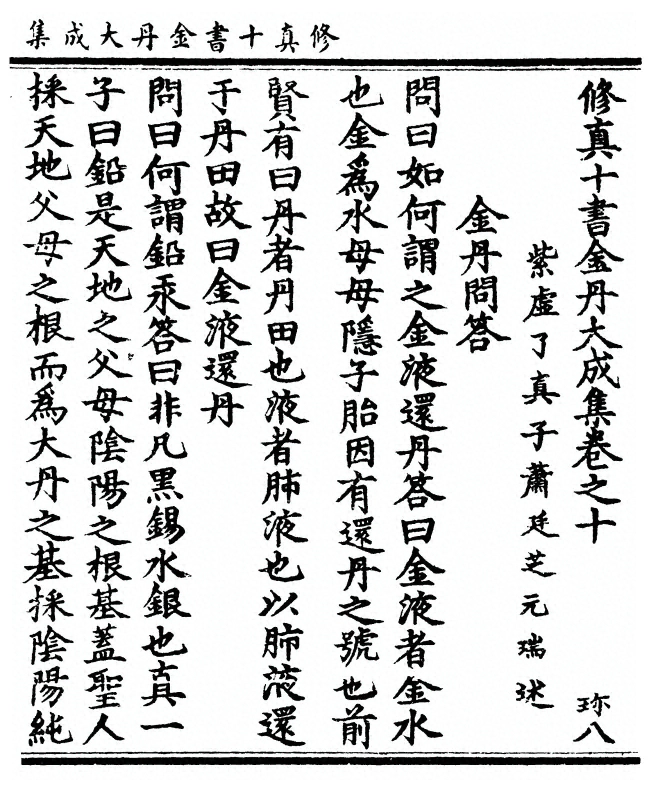 修真十書金丹大成集
修真十書金丹大成集卷之十 珎八
紫虛了真子蕭廷芝元瑞述
金丹問答
問曰如何謂之金液還丹答曰金液者金水
也金爲水母母隱子胎因有還丹之號也前
賢有曰丹者丹田也液者肺液也以肺液還
于丹田故曰金液還丹
問曰何謂鉛汞答曰非凡黑錫水銀也真一
子曰鉛是天地之父母陰陽之根基蓋聖人
採天地父母之根而爲大丹之基採陰陽純